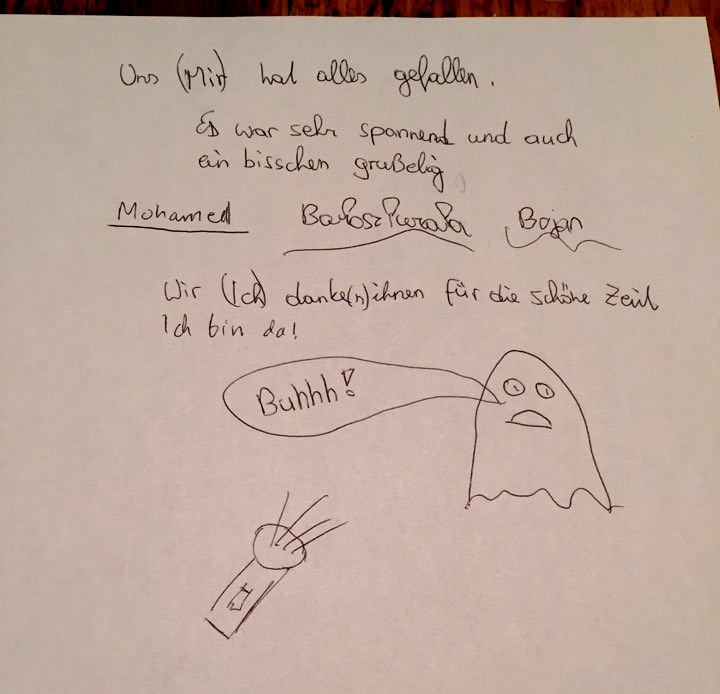 Uns (Mir) hat alles gefallen.
Es war sehr spannend und auch
ein bisschen grußelig
Mohamed Bojan
Wir (Ich) danke(n) ihnen für die schöne Zeit
Ich bin da!
Buhhh!